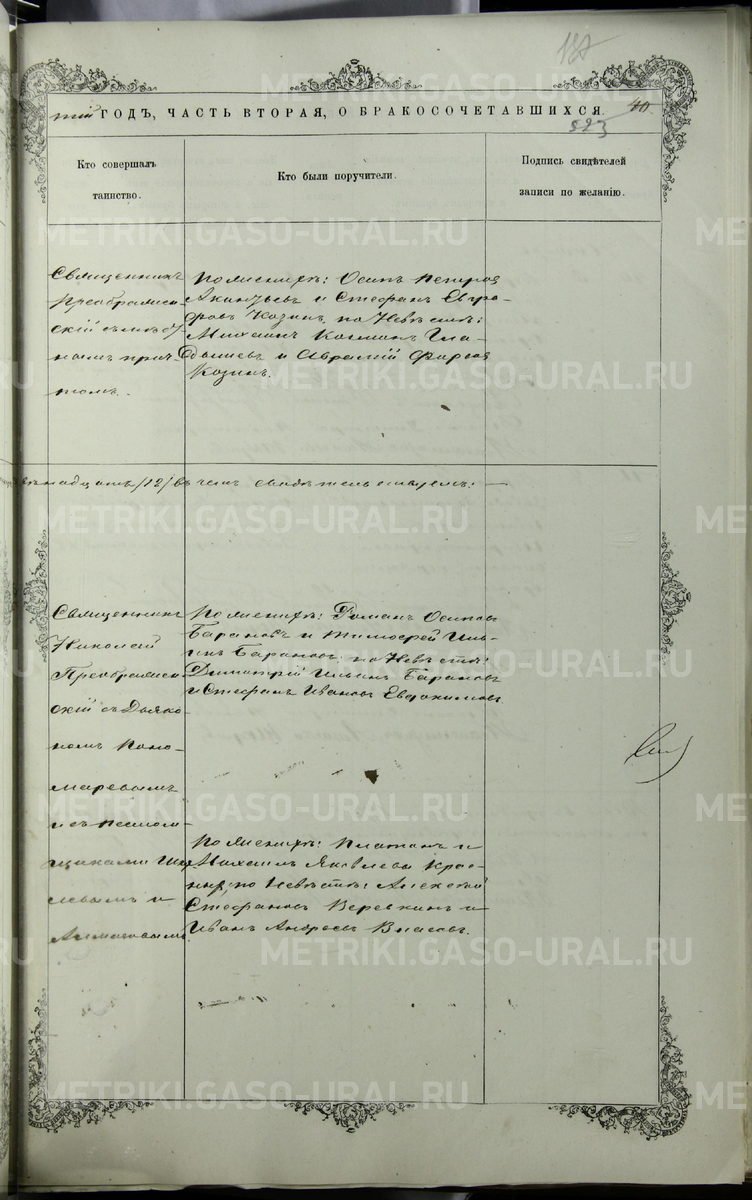 187
тій ГОДЪ, ЧАСТЬ ВТОРАЯ, О БРАКОСОЧЕТАВШИХСЯ. 40
593
Кто совершалъ
таинство.
Кто были поручители.
Подпись свидѣтелей
записи по желанію.
Священникъ
Преображен-
скій съ
нымъ прич-
томъ.
По женихѣ: Осипъ Петровъ
и Стефанъ Евгра-
фовъ Козинъ, по невѣстѣ:
Михаилъ
и Аврамій Фирсовъ
Козинъ.
/12/ въ чемъ свидѣтельствуемъ: —
Священникъ
Николай
Преображен-
скій съ Діако-
номъ Поно-
маревымъ
и съ псалом-
щиками
левымъ и
По женихѣ: Романъ Осиповъ
Барановъ и Тимофей Иль-
инъ Барановъ; по невѣстѣ:
Димитрій Ильинъ Барановъ
и Стефанъ Ивановъ Евдокимовъ
По женихѣ: Платонъ и
Михаилъ Яковлевы Крас-
ныхъ; по невѣстѣ: Алексѣй
Стефановъ Веревкинъ и
Иванъ Андреевъ Власовъ.
METRIKI.GASO-URAL.RU